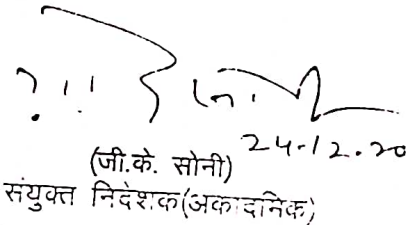 24-12-20
(जी.के. सोनी)
संयुक्त निदेशक(अकादमिक)